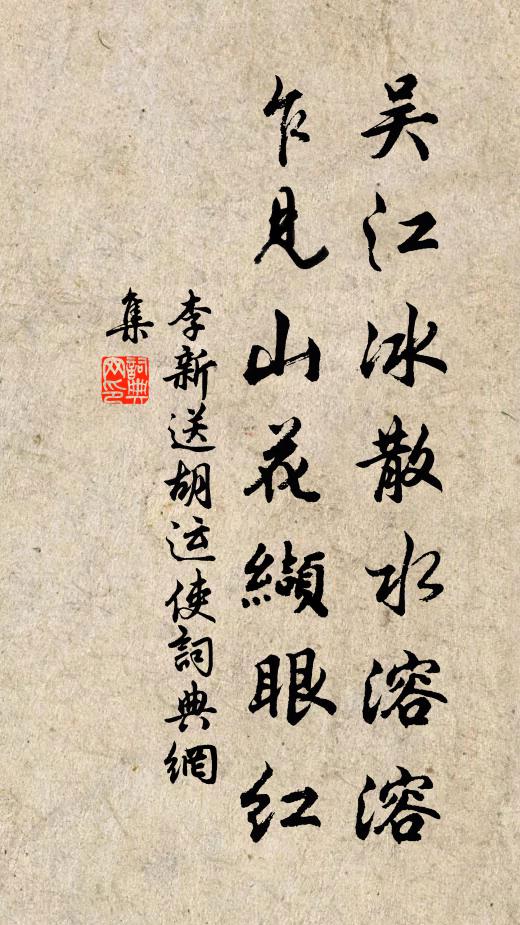 吴江冰散水溶溶
乍见山花缬眼红
李新送胡运使詞典網
集
詞典网印